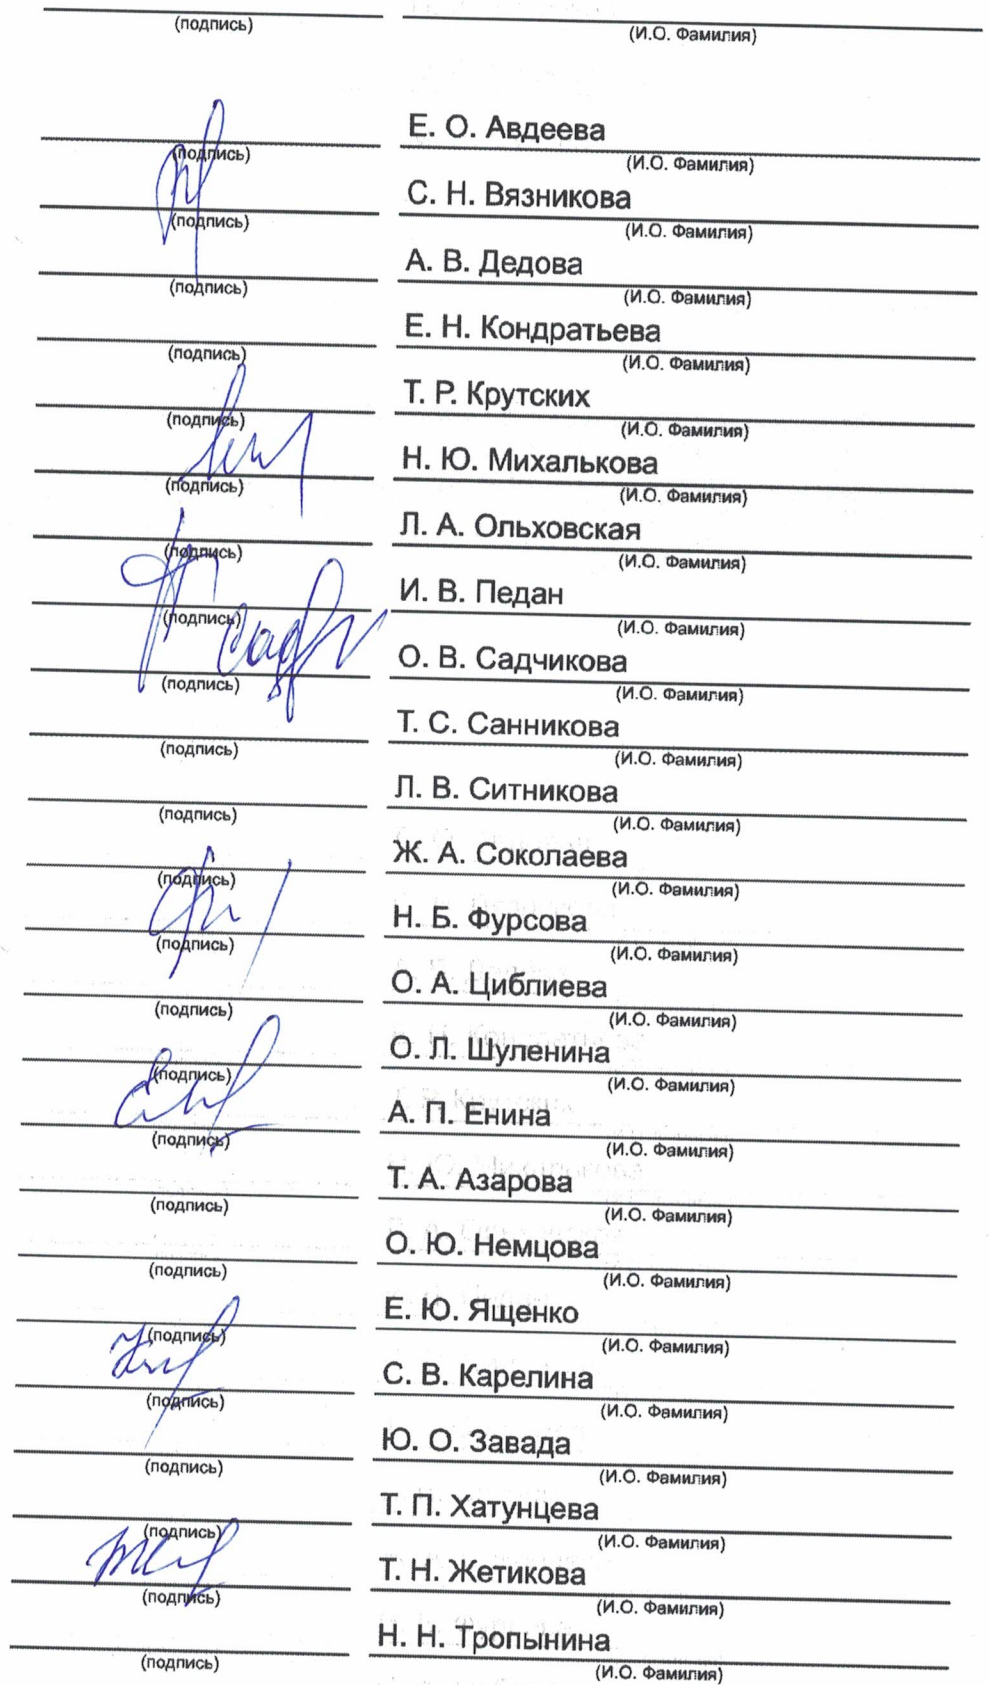 (подпись) (И.О. Фамилия)
Е. О. Авдеева
(подпись) (И.О. Фамилия)
С. Н. Вязникова
(подпись) (И.О. Фамилия)
А. В. Дедова
(подпись) (И.О. Фамилия)
Е. Н. Кондратьева
(подпись) (И.О. Фамилия)
Т. Р. Крутских
(подпись) (И.О. Фамилия)
Н. Ю. Михалькова
(подпись) (И.О. Фамилия)
Л. А. Ольховская
(подпись) (И.О. Фамилия)
И. В. Педан
(подпись) (И.О. Фамилия)
О. В. Садчикова
(подпись) (И.О. Фамилия)
Т. С. Санникова
(подпись) (И.О. Фамилия)
Л. В. Ситникова
(подпись) (И.О. Фамилия)
Ж. А. Соколаева
(подпись) (И.О. Фамилия)
Н. Б. Фурсова
(подпись) (И.О. Фамилия)
О. А. Циблиева
(подпись) (И.О. Фамилия)
О. Л. Шуленина
(подпись) (И.О. Фамилия)
А. П. Енина
(подпись) (И.О. Фамилия)
Т. А. Азарова
(подпись) (И.О. Фамилия)
О. Ю. Немцова
(подпись) (И.О. Фамилия)
Е. Ю. Ященко
(подпись) (И.О. Фамилия)
С. В. Карелина
(подпись) (И.О. Фамилия)
Ю. О. Завада
(подпись) (И.О. Фамилия)
Т. П. Хатунцева
(подпись) (И.О. Фамилия)
Т. Н. Жетикова
(подпись) (И.О. Фамилия)
Н. Н. Тропынина
(подпись) (И.О. Фамилия)